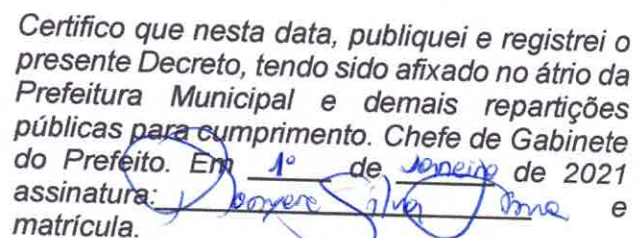 Certifico que nesta data, publiquei e registrei o
presente Decreto, tendo sido afixado no átrio da
Prefeitura Municipal e demais repartições
públicas para cumprimento. Chefe de Gabinete
do Prefeito. Em 1º de Janeiro de 2021
assinatura: Silva e
matrícula.